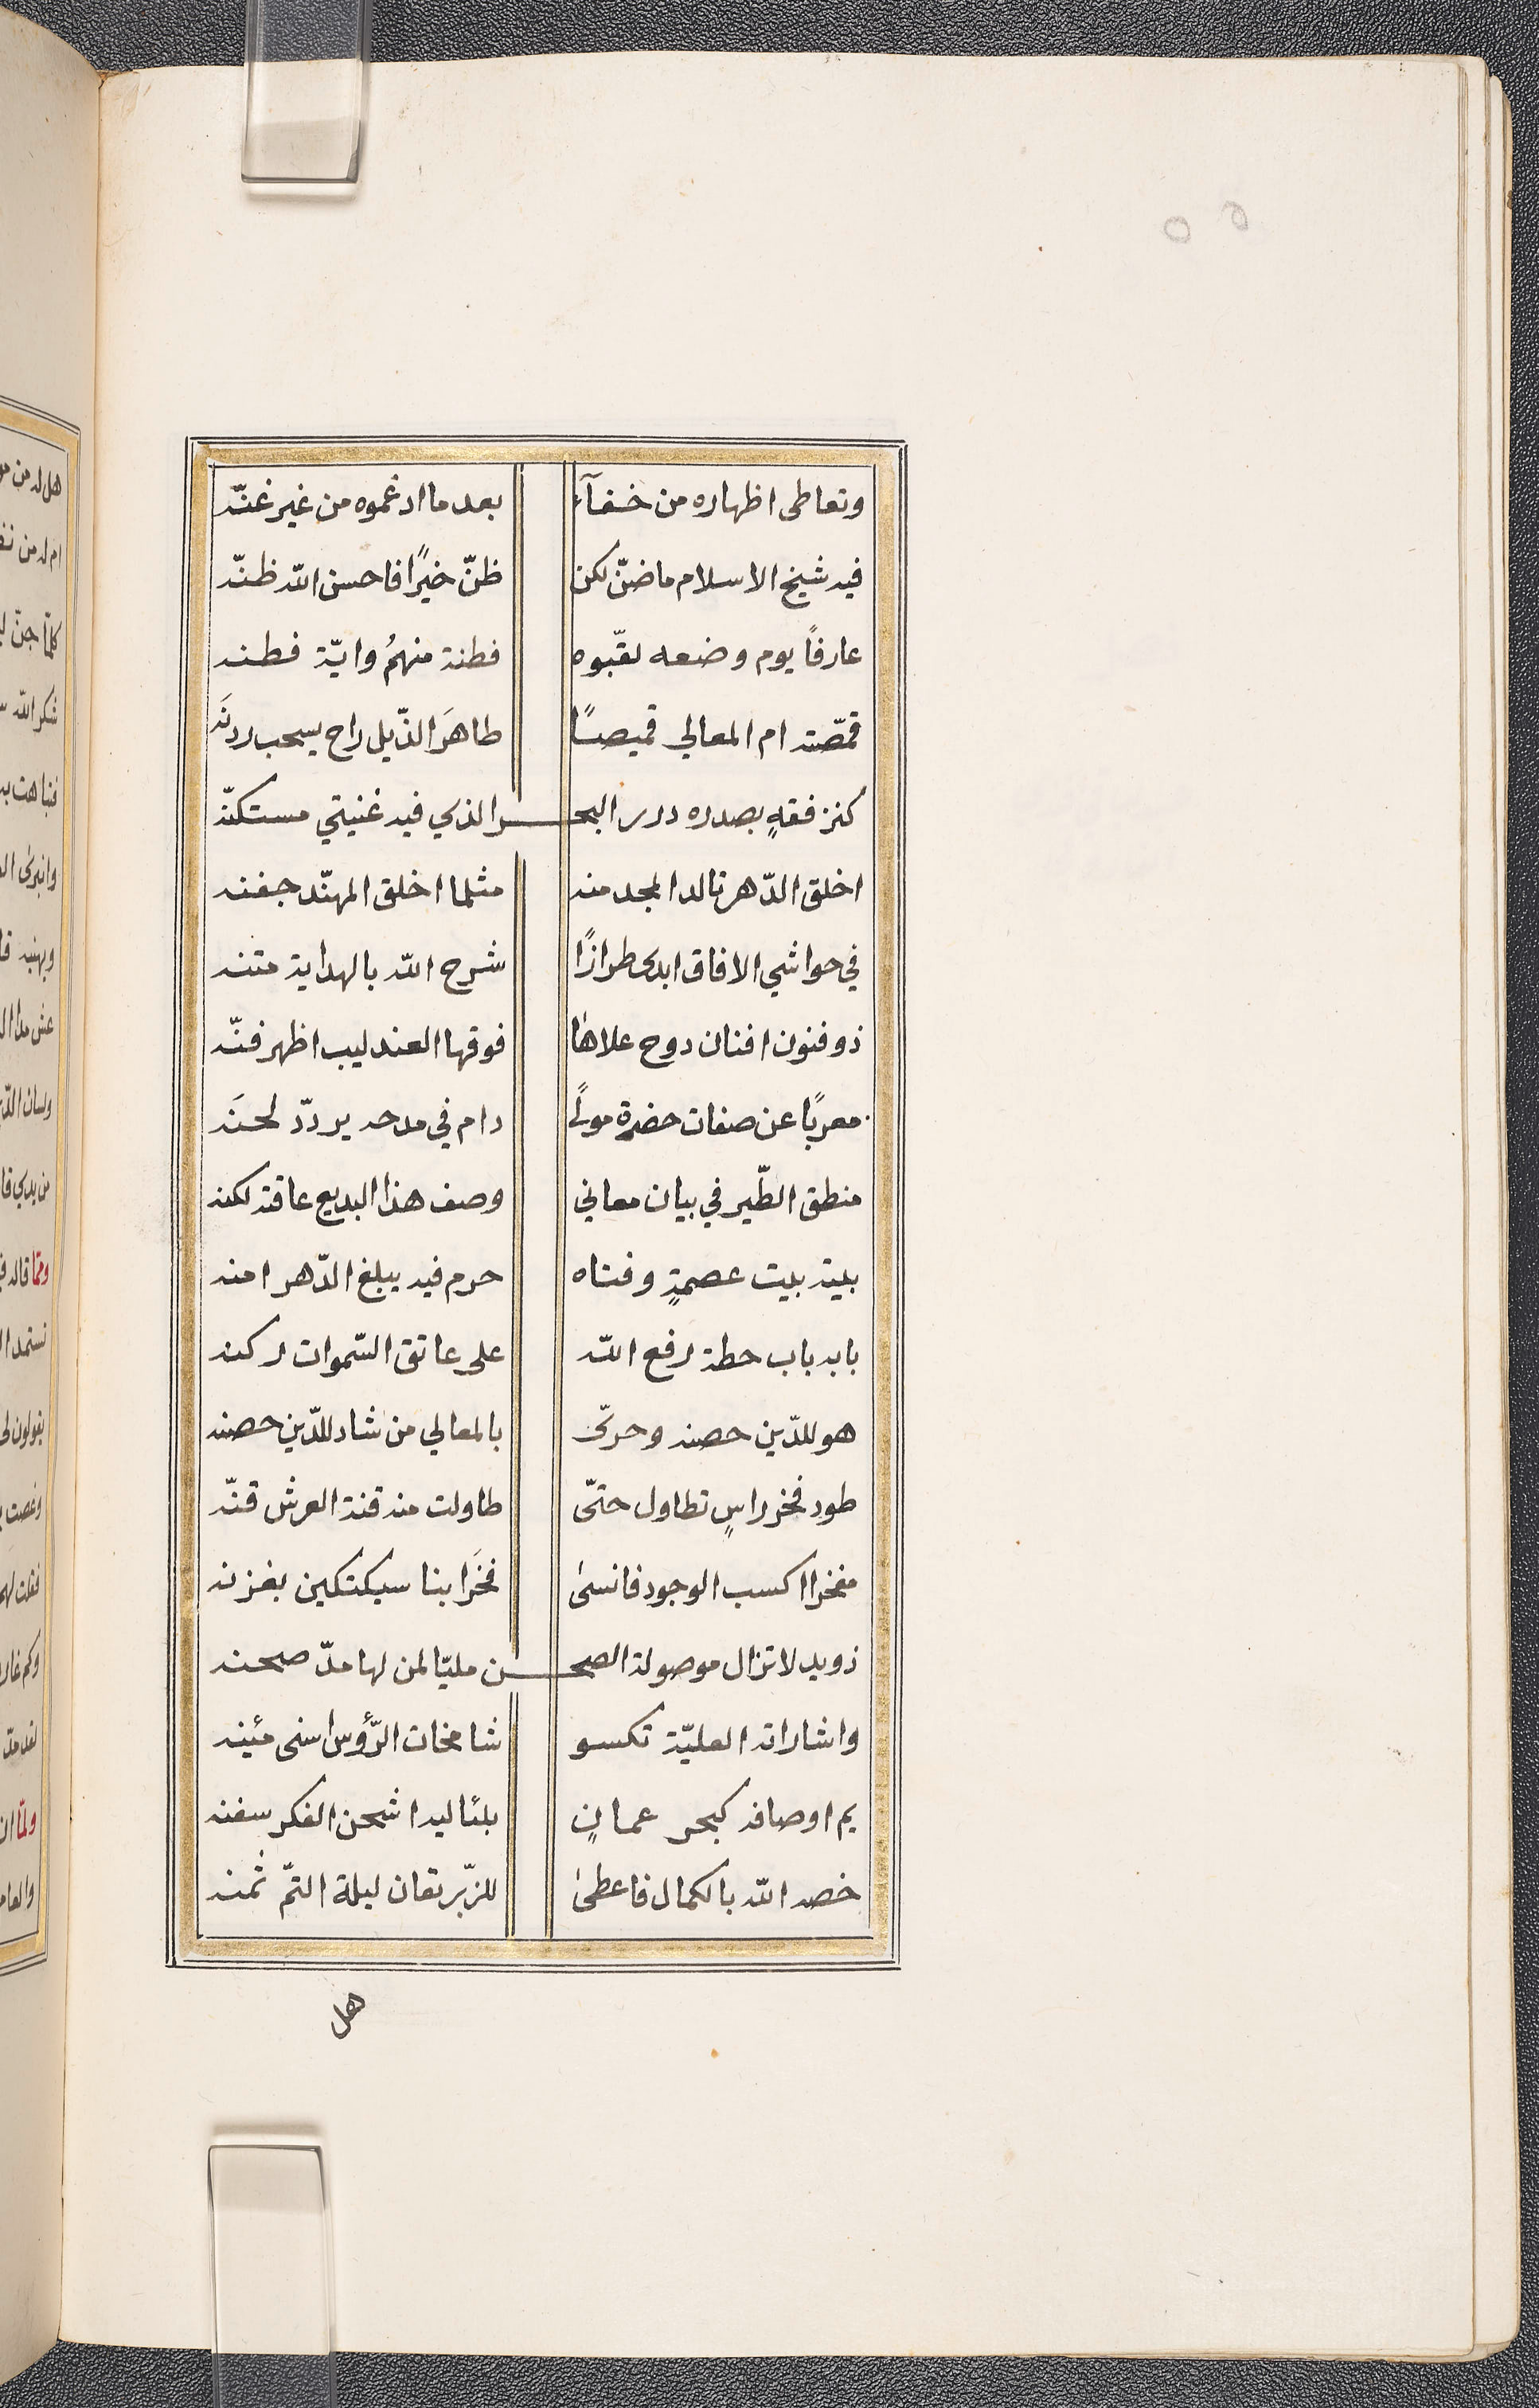 ٥٥
وتعاطى اظهاره من خفآء بعد ما ادغموه من غير غنّه
فيه شيخ الاسلام ما ضنّ لكن ظنّ خيرًا فاحسن الله ظنّه
عارفًا يوم وضعه لقّبوه فطنة منهمُ وايّة فطنه
قمّصته ام المعالي قميصًا طاهرَ الذّيل راح يسحب ردنَه
كنز فقهٍ بصدره درر البحر الذي فيه غنيتي مستكنّه
اخلق الدّهر تالد المجد منه مثلما اخلق المهنّد جفنه
في حواشي الافاق ابدى طرازًا شرح الله بالهداية متنه
ذو فنون افنان دوح علاها فوقها العندليب اظهر فنّه
معربًا عن صفات حضرة مولًى دام في مدحه يردّد لحنَه
منطق الطّير في بيان معاني وصف هذا البديع عاقته لكنه
بيته بيت عصمةٍ وفناه حرم فيه يبلغ الدّهر امنه
بابه باب حطة رفع الله على عاتق السّموات ركنه
هو للدّين حصنه وحرىّ بالمعالي من شاد للدّين حصنه
طود فخر راسٍ تطاول حتّى طاولت منه قنة العرش قنّه
مفخرا اكسب الوجود فانسىٰ فخرَ ابنا سبكتكين بغزنه
ذو يد لا تزال موصولة الصحن مليّا لمن لها مدّ صحنه
واشاراته العليّة تكسو شامخات الرّؤس اسنى مئينه
يم اوصافه كبحر عمانٍ بلئاليه اشحن الفكر سفنه
خصه الله بالكمال فاعطىٰ للزّبرتقان ليلة التمّ ثمنه
هل